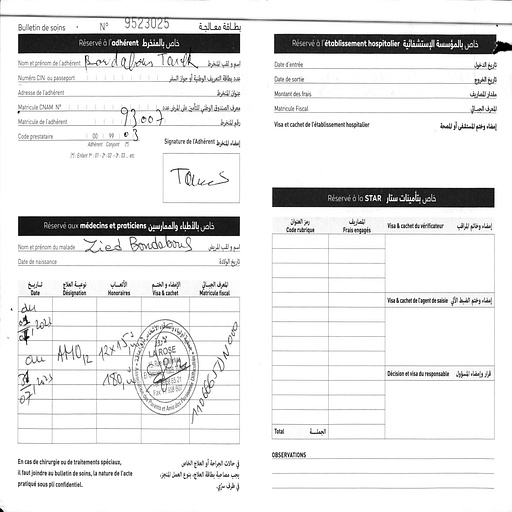 Bulletin de soins N° 9523025 بطاقة معالجة
Réservé à l'adhérent خاص بالمنخرط
Nom et prénom de l'adhérent Bondabous Tarek إسم و لقب المنخرط
Numéro CIN ou passeport عدد بطاقة التعريف الوطنية أو جواز السفر
Adresse de l'adhérent عنوان المنخرط
Matricule CNAM N° معرف الصندوق الوطني للتأمين على المرض عدد
Matricule de l'adhérent 93007 رقم المنخرط
Code prestataire 00 99 03
Adhérent Conjoint (*)
(*) : Enfant 1er : 01 - 2 : 02 - 3 : 03... etc
Signature de l'Adhérent إمضاء المنخرط
Réservé aux médecins et praticiens خاص بالأطباء والممارسين
Nom et prénom du malade Zied Bondabous إسم و لقب المريض
Date de naissance تاريخ الولادة
تاريخ نوعية العلاج الأتعاب الإمضاء و الختم المعرف الجبائي
Date Désignation Honoraires Visa & cachet Matricule fiscal
du
au AMO 12 12x15
180
LA ROSE
En cas de chirurgie ou de traitements spéciaux,
il faut joindre au bulletin de soins, la nature de l'acte
pratiqué sous pli confidentiel.
في حالات الجراحة أو العلاج الخاص
يجب مصاحبة بطاقة العلاج، بنوع العمل المنجز،
في ظرف سري.
Réservé à l'établissement hospitalier خاص بالمؤسسة الإستشفائية
Date d'entrée تاريخ الدخول
Date de sortie تاريخ الخروج
Montant des frais مقدار المصاريف
Matricule Fiscal المعرف الجبائي
Visa et cachet de l'établissement hospitalier إمضاء وختم المستشفى أو المصحة
Réservé à la STAR خاص بتأمينات ستار
رمز العنوان المصاريف
Code rubrique Frais engagés Visa & cachet du vérificateur إمضاء وخاتم المراقب
Visa & cachet de l'agent de saisie إمضاء وختم الضبط الآلي
Décision et visa du responsable قرار وإمضاء المسؤول
Total الجملة
OBSERVATIONS